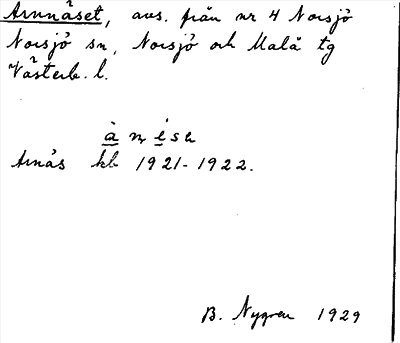 Arnnäset, avs. från nr 4 Norsjö
Norsjö sn, Norsjö och Malå tg
Västerb. l.
Arnäs kb 1921-1922.
B. Nygren 1929